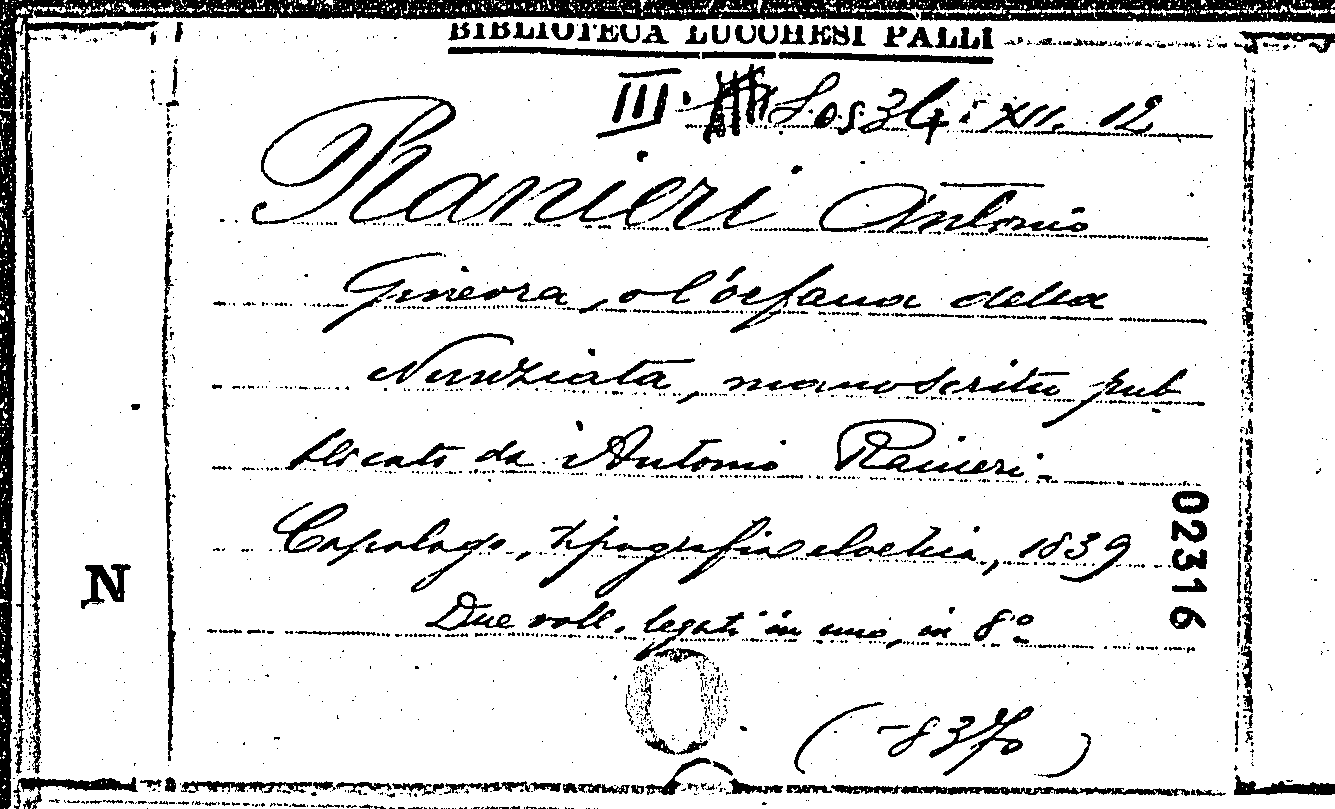 BIBLIOTECA LUCCHESI PALLI
III. XII. 12
Ranieri Antonio
Ginevra, o l'orfana della
Nunziata, manoscritto pub
blicato da Antonio Ranieri.
Capolago, tipografia elvetica, 1839
Due voll. legati in uno, in 8º
N
02316